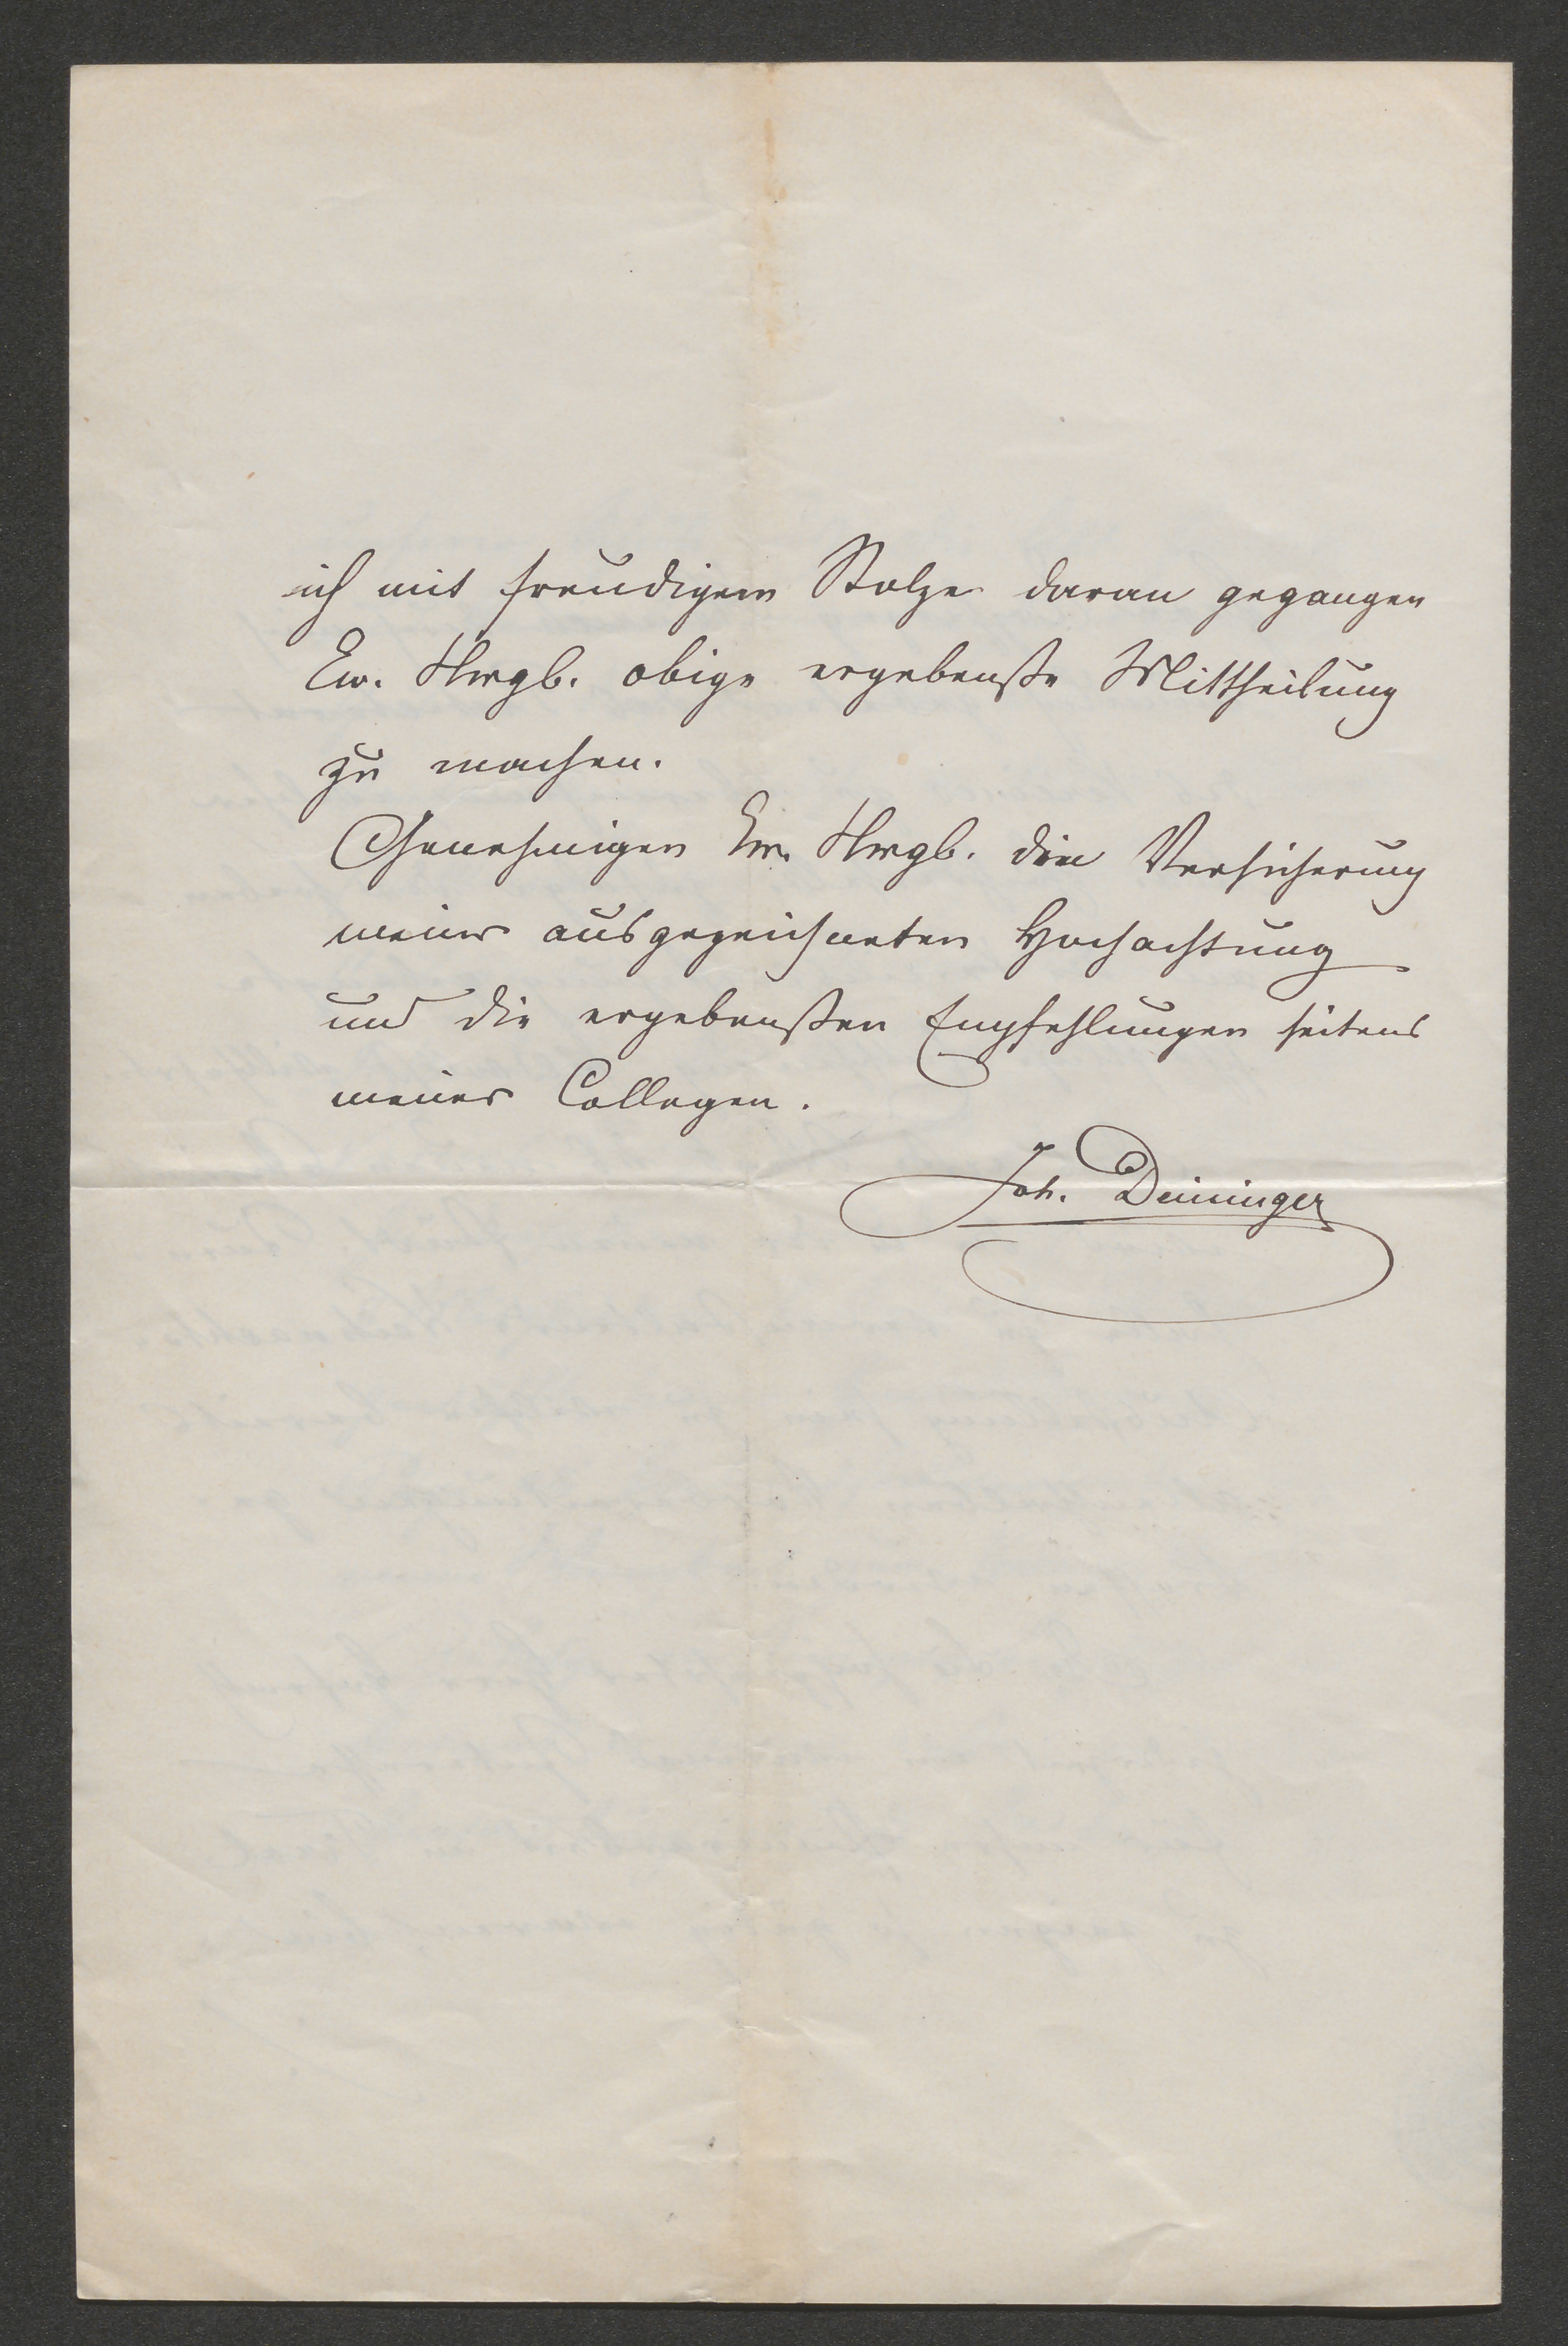 ich mit freudigem Stolze daran gegangen
Ew. Hwgb. obige ergebenste Mittheilung
zu machen.
Genehmigen Ew. Hwgb. die Versicherung
meiner ausgezeichneten Hochachtung
und die ergebensten Empfehlungen seitens
meiner Collegen.
Joh. Deininger